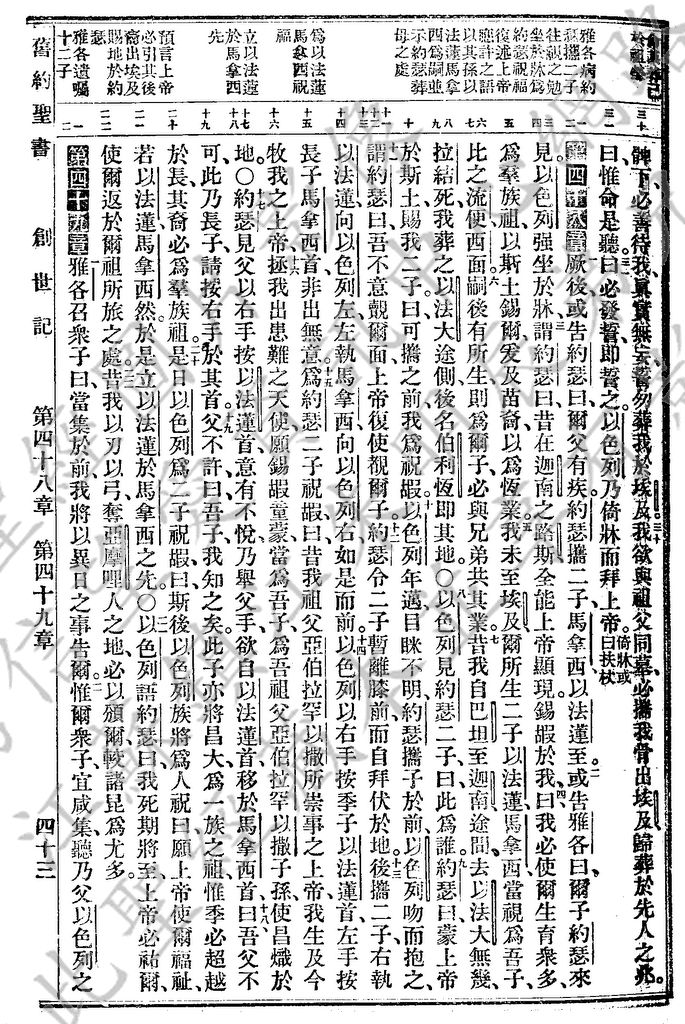 髀下必善待我眞實無妄誓勿葬我於埃及我欲與祖父同墓必攜我骨出埃及歸葬於先人之兆。
曰惟命是聽曰必發誓即誓之以色列乃倚牀而拜上帝倚牀或曰扶杖
第四十八章厥後或告約瑟曰爾父有疾約瑟攜二子馬拿西以法蓮至或告雅各曰爾子約瑟來
見以色列强坐於牀謂約瑟曰昔在迦南之路斯全能上帝顯現錫嘏於我曰我必使爾生育衆多
爲羣族祖以斯土錫爾爰及苗裔以爲恆業我未至埃及爾所生二子以法蓮馬拿西當視爲吾子
比之流便西面嗣後有所生則爲爾子必與兄弟共其業昔我自巴坦至迦南途間去以法大無幾
拉結死我葬之以法大途側後名伯利恆即其地。○以色列見約瑟二子曰此爲誰約瑟曰蒙上帝
於斯土賜我二子曰可攜之前我爲祝嘏以色列年邁目眯不明約瑟攜子於前以色列吻而抱之
謂約瑟曰吾不意覿爾面上帝復使覩爾子約瑟令二子暫離膝前而自拜伏於地後攜二子右執
以法蓮向以色列左左執馬拿西向以色列右如是而前以色列以右手按季子以法蓮首左手按
長子馬拿西首非出無意爲約瑟二子祝嘏曰昔我祖父亞伯拉罕以撒所崇事之上帝我生及今
牧我之上帝拯我出患難之天使願錫嘏童蒙當爲吾子爲吾祖父亞伯拉罕以撒子孫使昌熾於
地。○約瑟見父以右手按以法蓮首意有不悅乃舉父手欲自以法蓮首移於馬拿西首曰吾父不
可此乃長子請按右手於其首父不許曰吾子我知之矣此子亦將昌大爲一族之祖惟季必超越
於長其裔必爲羣族祖是日以色列爲二子祝嘏曰斯後以色列族將爲人祝曰願上帝使爾福祉
若以法蓮馬拿西然於是立以法蓮於馬拿西之先○以色列語約瑟曰我死期將至上帝必祐爾
使爾返於爾祖所旅之處昔我以刃以弓奪亞摩哩人之地必以頒爾較諸昆爲尤多。
第四十九章雅各召衆子曰當集於前我將以異日之事告爾惟爾衆子宜咸集聽乃父以色列之
雅各病約
瑟攜二子
往視之勉
坐於牀爲
約瑟祝福
復述上帝
應許之語
以其孫以
法蓮馬拿
西爲嗣並
示約瑟葬
母之處
爲以法蓮
馬拿西祝
福
立以法蓮
於馬拿西
之先
預言上帝
必引其後
裔出埃及
賜地於約
瑟
雅各遺囑
十二子
舊約聖書 創世記 第四十八章 第四十九章 四十三